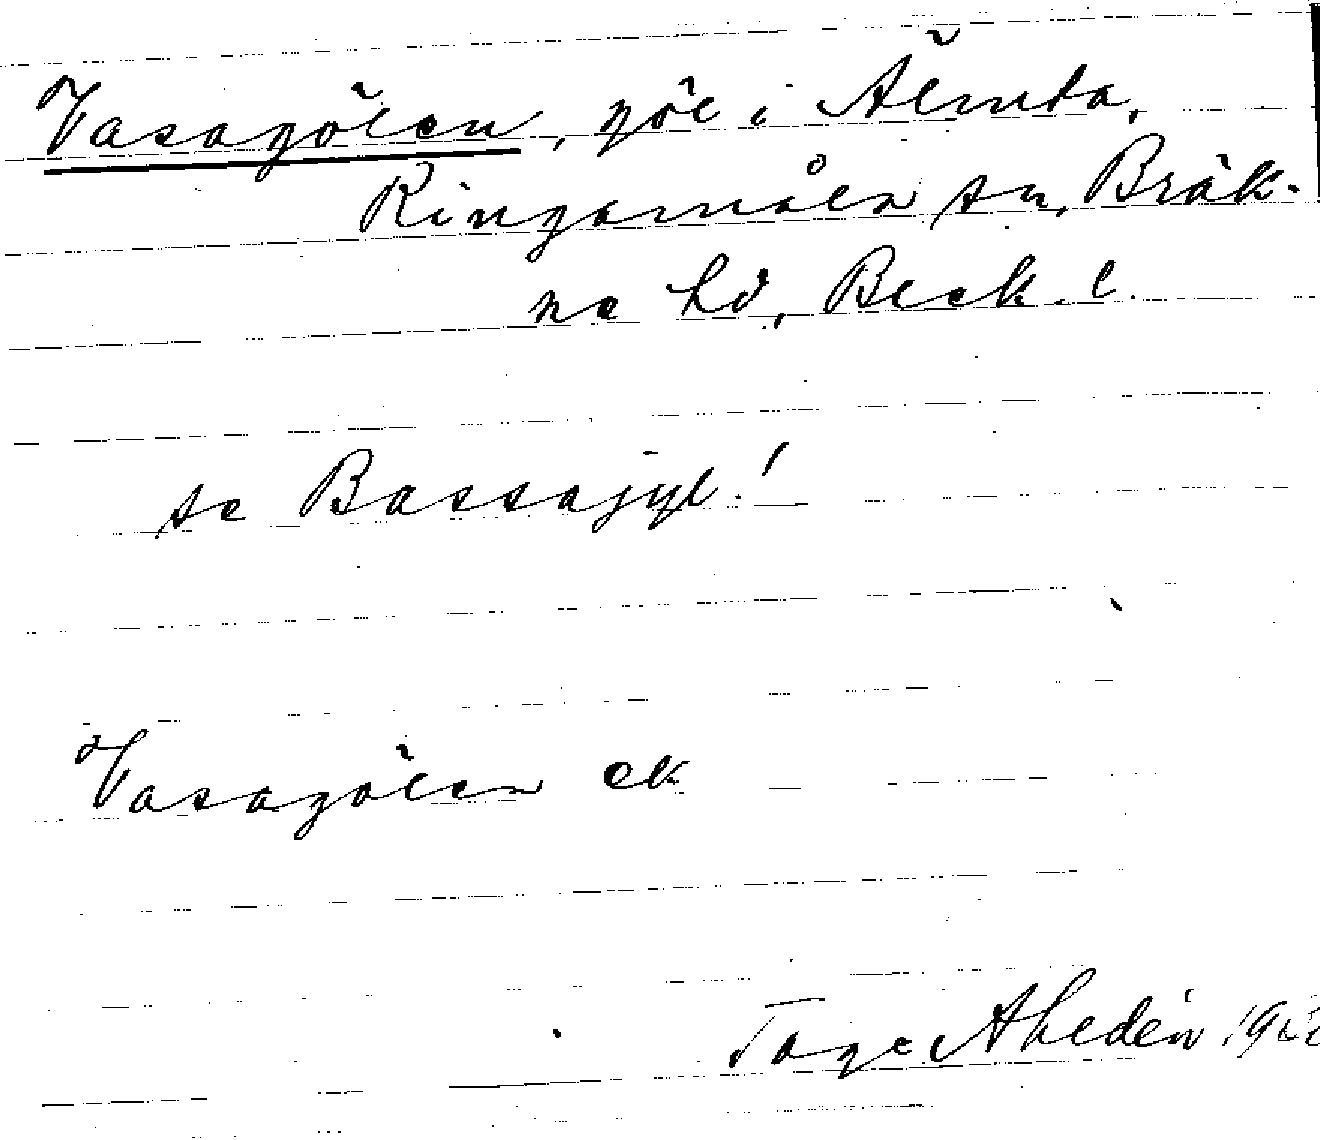 Vasagölen, göl i Älmta,
Ringamåla sn, Bräk-
ne hd, Blek. l.
se Bassajyl!
Vasagölen ek
Tage Ahldén